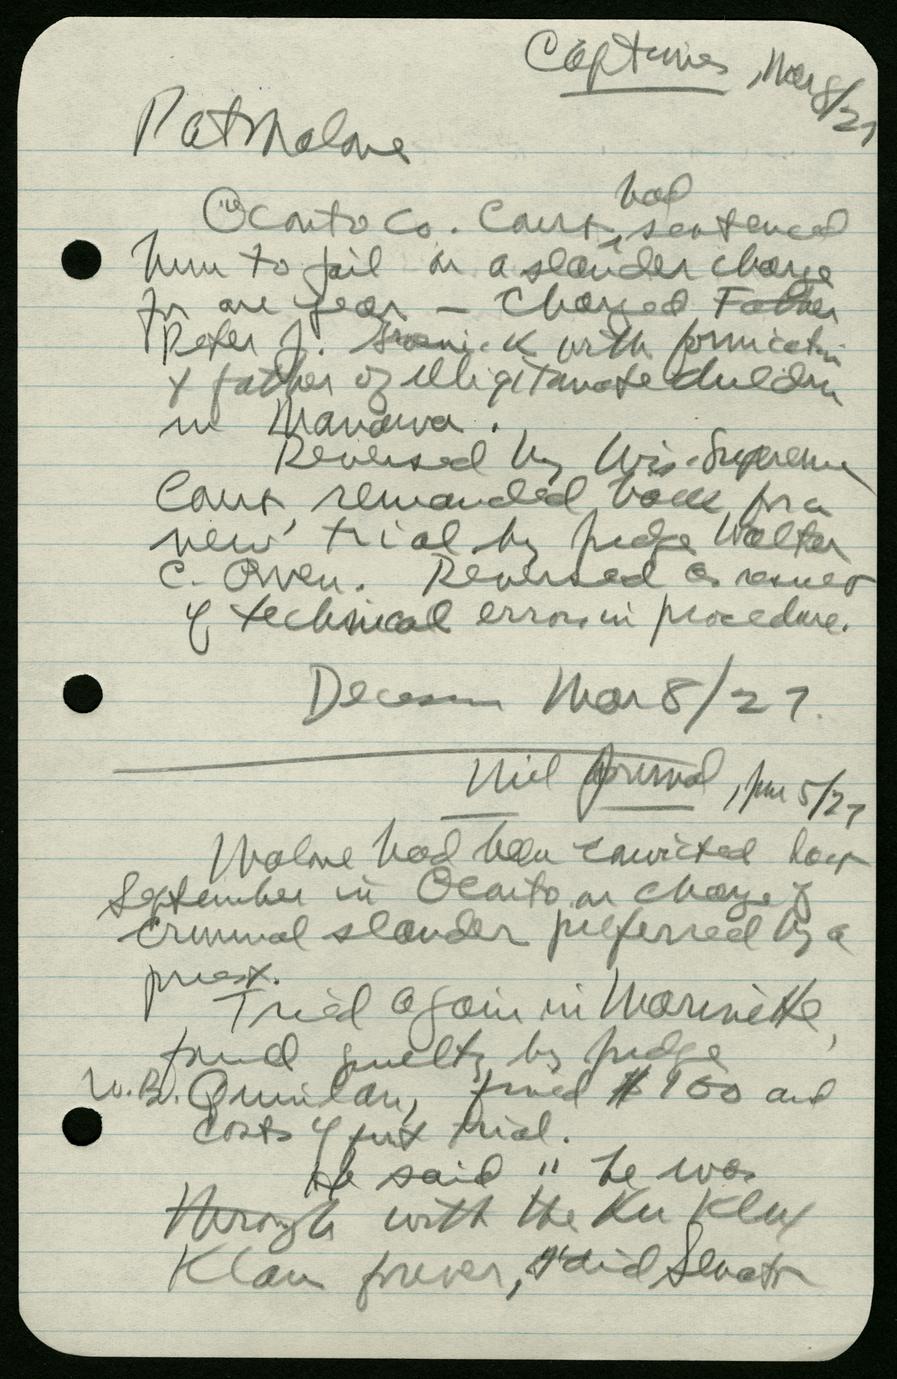 Cap Times, Mar 8/27
Pat Malone
Oconto Co. Court had sentenced
him to jail on a slander charge
for one year – Charged Father
Peter J. with fornication
& father of illigitamate children
in Manawa.
Reversed by Wis. Supreme
Court remanded back for a
new trial by Judge Walter
C. Owen. Reversed as result
of technical errors in procedure.
Decision Mar 8/27.
Mil Journal, Jun 5/27
Malone had been convicted last
September in Oconto on charge of
criminal slander preferred by a
priest.
Tried again in Marinette,
found guilty by Judge
W.B. Quinlan, fined $100 and
costs of first trial.
He said "he was
through with the Ku Klux
Klan forever," said Senator